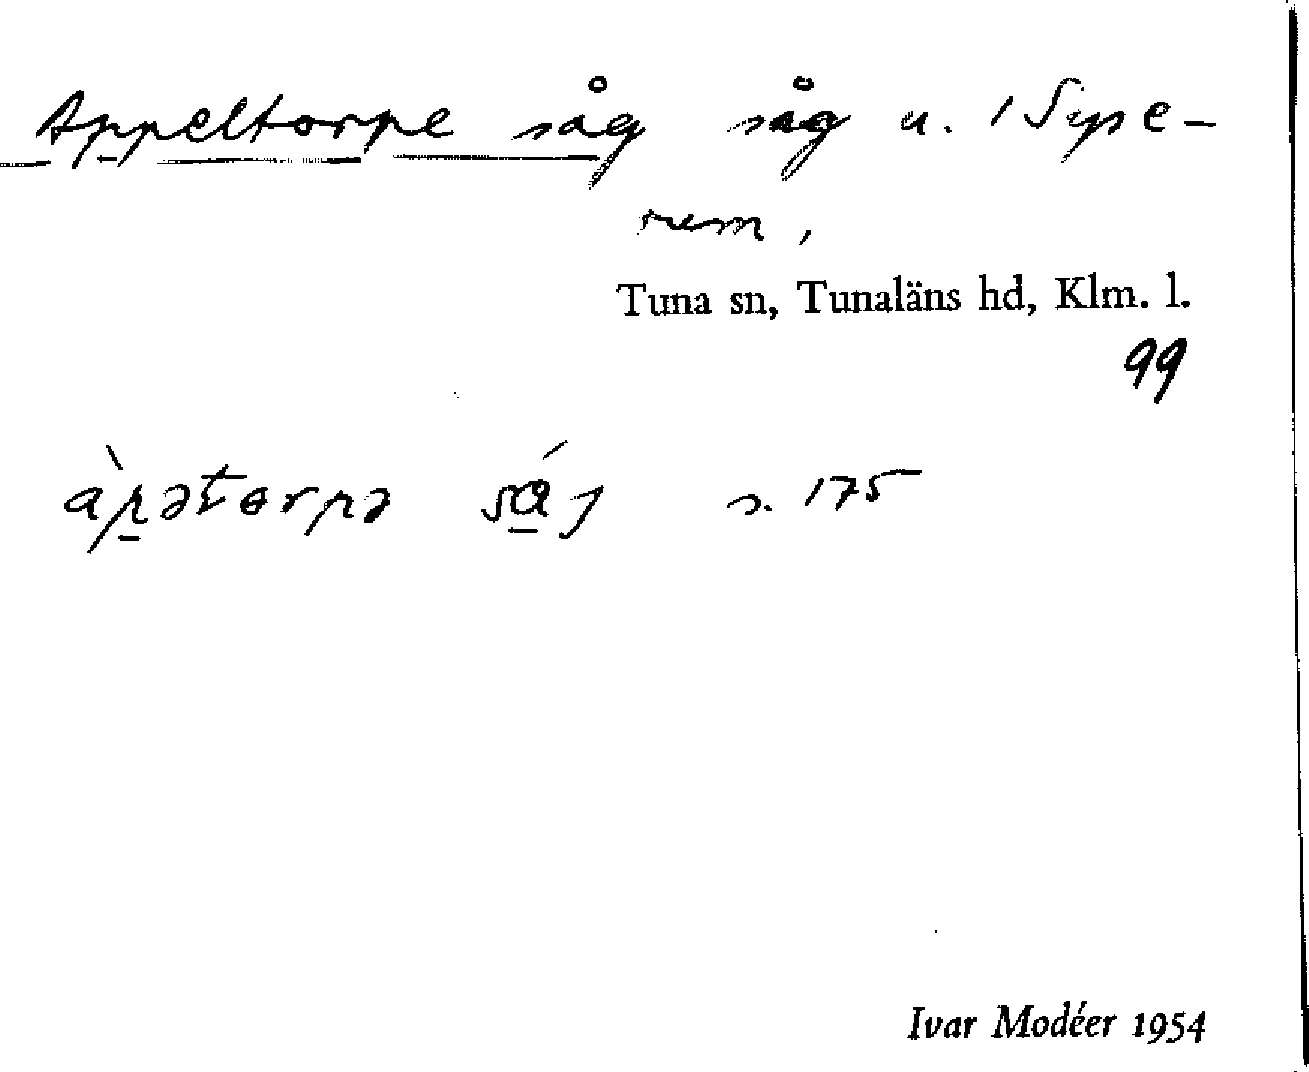 Appeltorpe såg såg u. 1 Sype-
rum,
Tuna sn, Tunaläns hd, Klm. l.
99
àp̱ətɵrpə sɑ̱́j s. 175
Ivar Modéer 1954